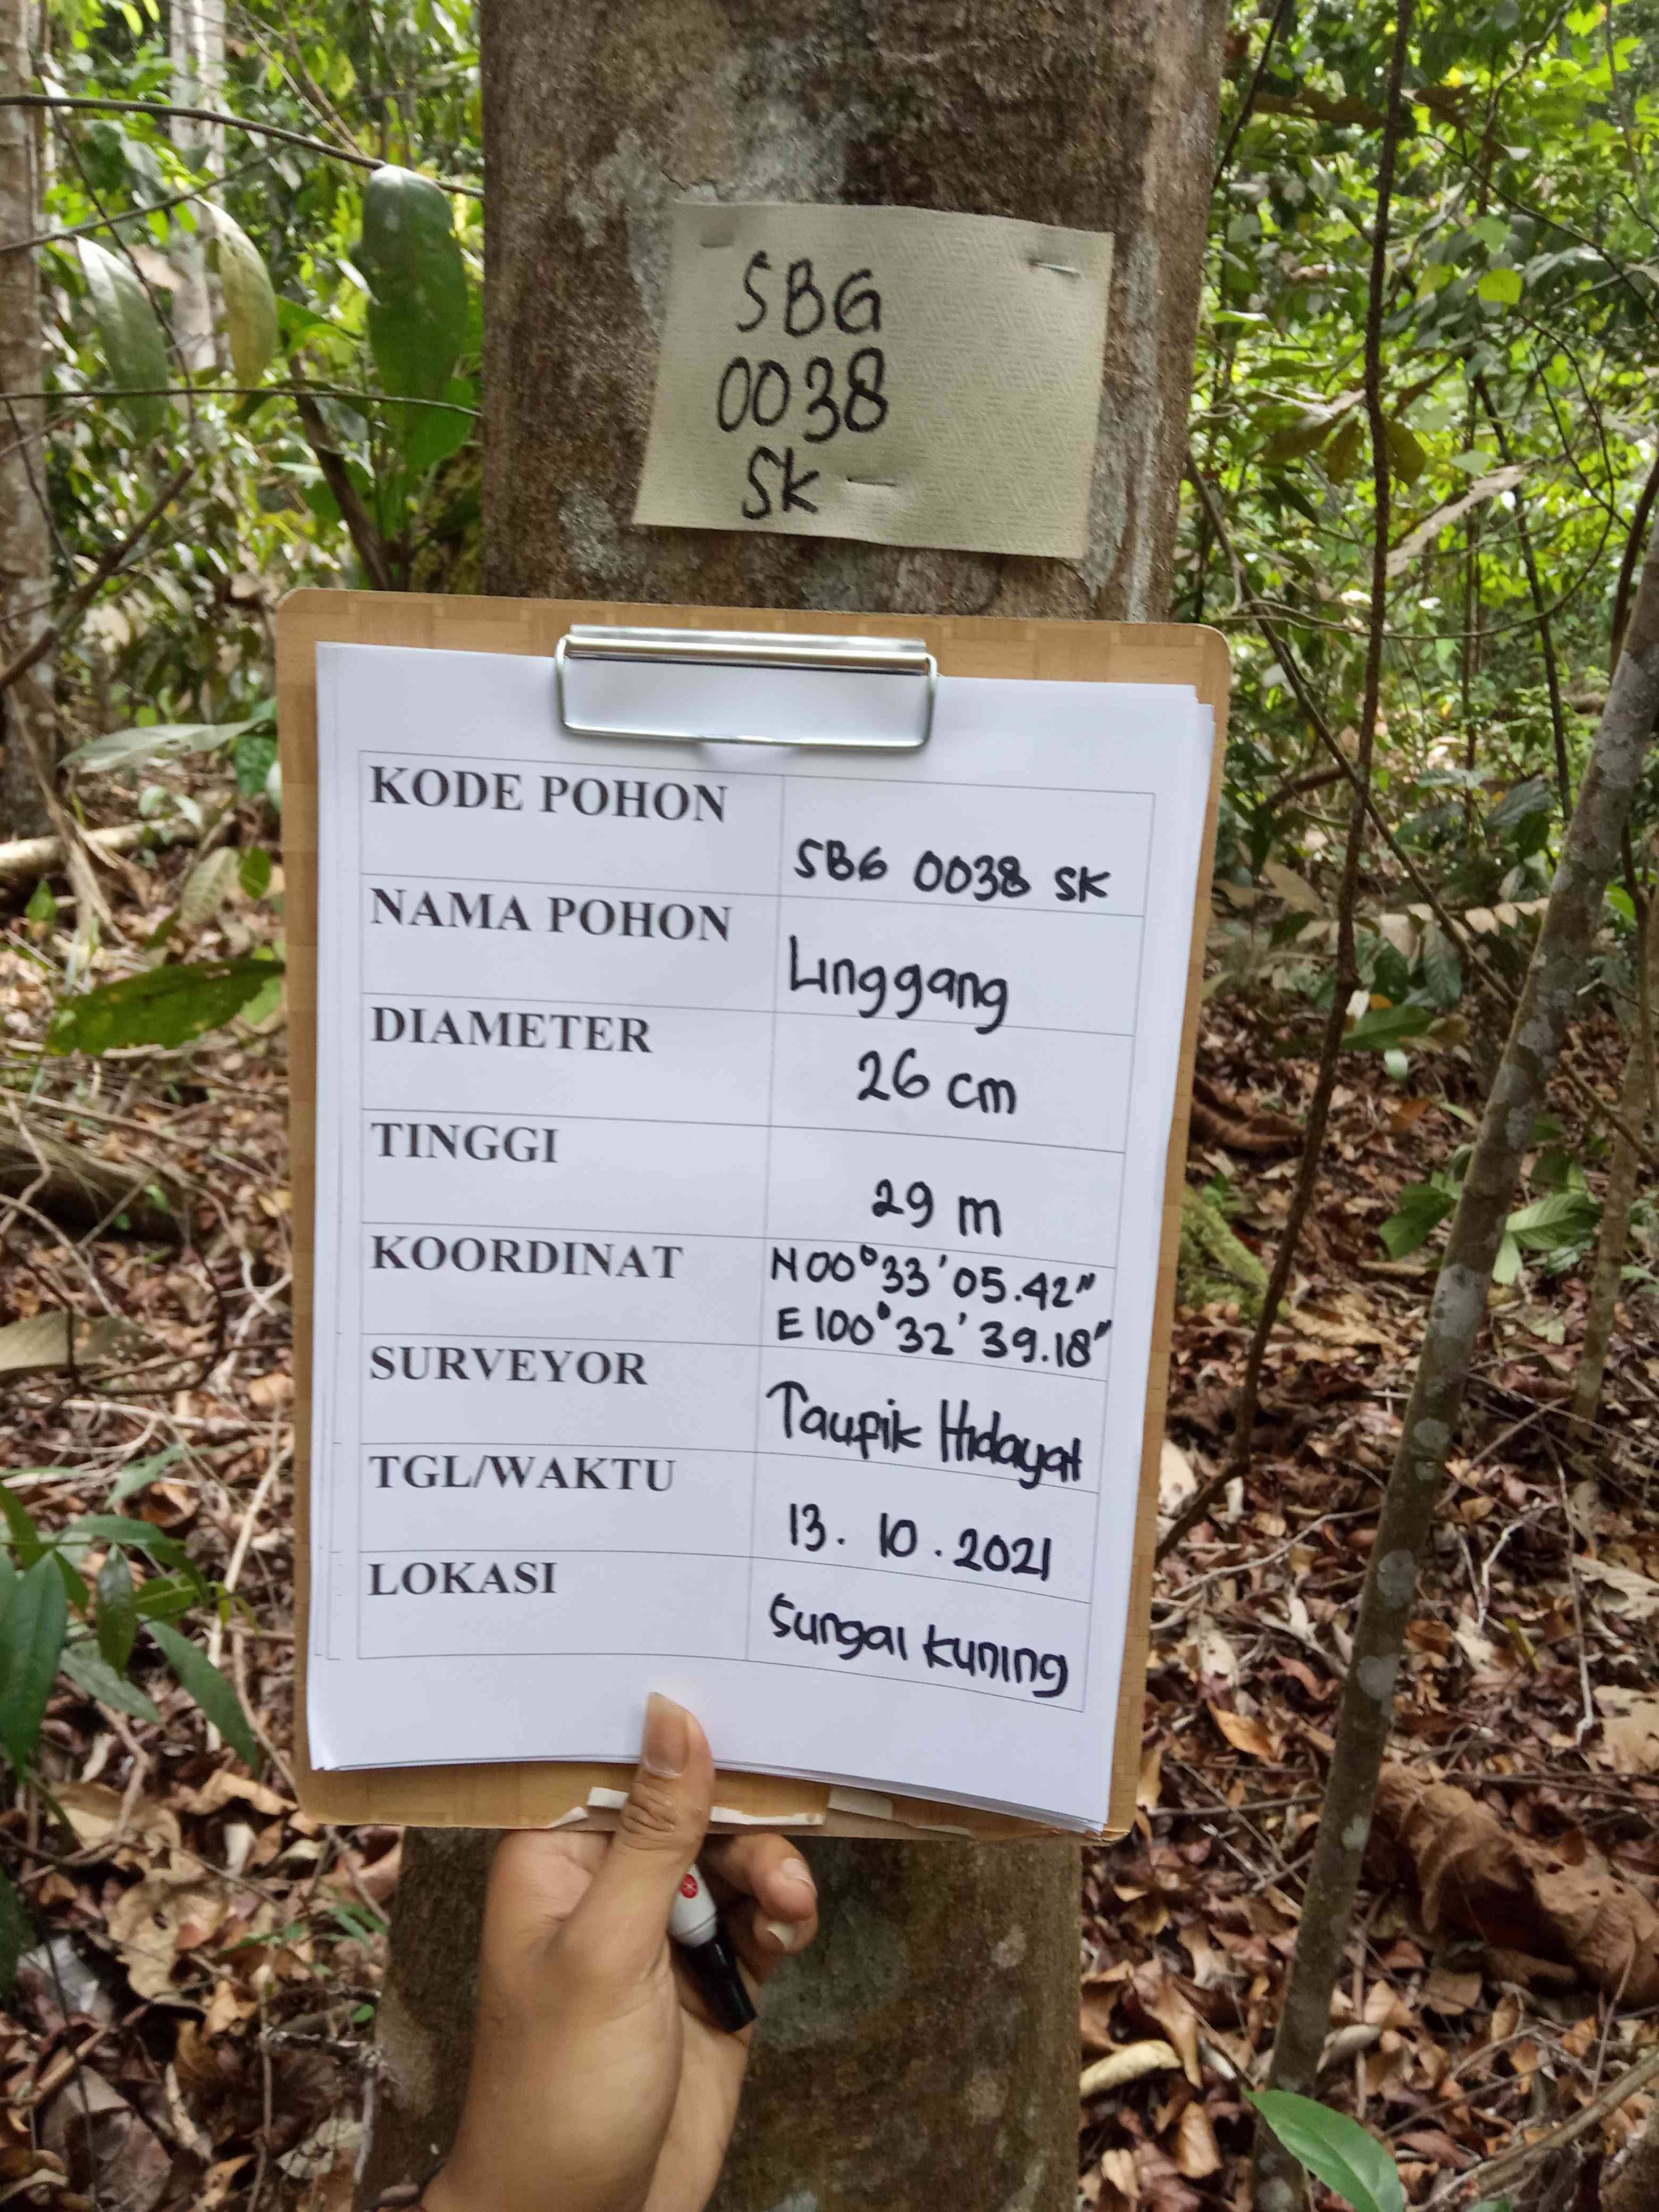 SBG
0038
SK
KODE POHON
SBG 0038 SK
NAMA POHON
Linggang
DIAMETER
26 cm
TINGGI
29 m
KOORDINAT
N 00°33'05.42"
E 100°32'39.18"
SURVEYOR
Taupik Hidayat
TGL/WAKTU
13. 10. 2021
LOKASI
Sungai Kuning